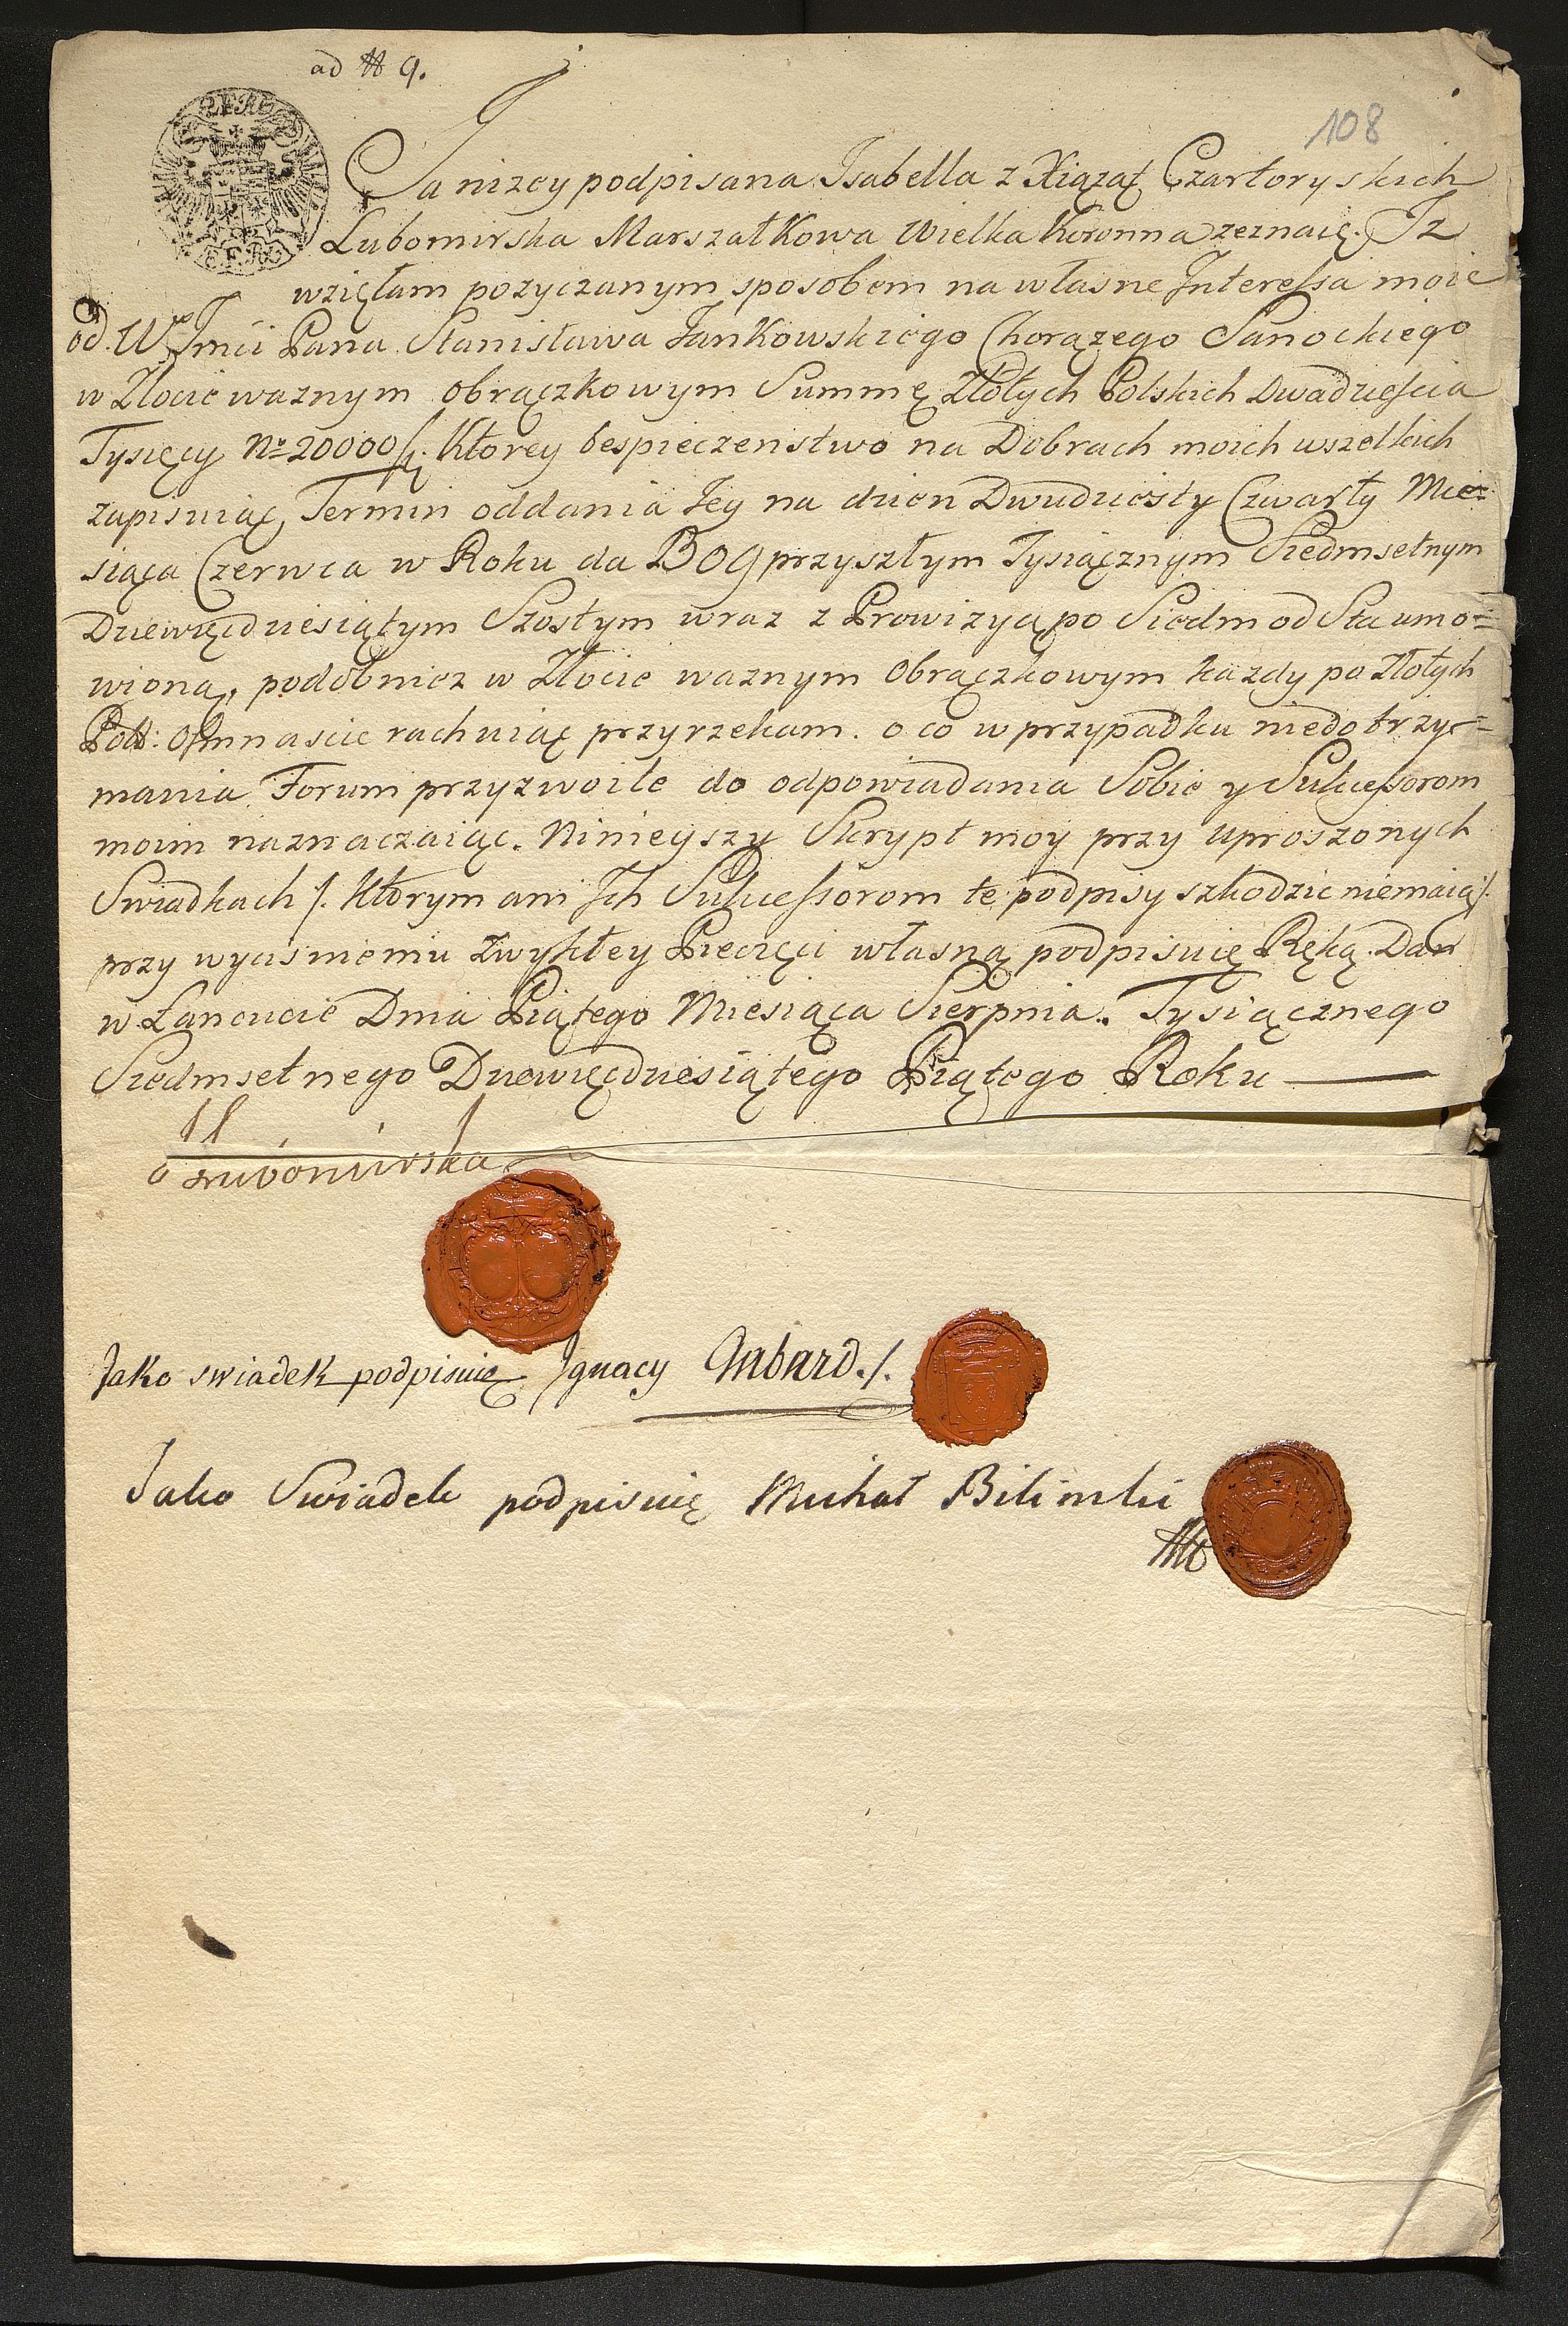 ad # 9.
108
Ja nizey podpisana Isabella z Xiąząt Czartoryskich
Lubomirska Marszałkowa Wielka Koronna zeznaię. Iz
wzięłam pozyczanym sposobem na własne Interessa moie
od. W Jmći Pana Stanisława Jankowskiego Chorązego Sanockiego
w Złocie waznym obrączkowym Summę Złotych Polskich Dwadzieścia
Tysięcy No 20000 Ktorey bespieczenstwo na Dobrach moich wszelkich
zapisuiąc, Termin oddania Jey na dzien Dwudziesty Czwarty Mie=
siąca Czerwca w Roku da BOG przyszłym Tysiącznym Siedmsetnym
Dziewięcdziesiątym Szostym wraz z Prowizyą po Siedm od Sta umo=
wioną, podobniez w Złocie waznym Obrączkowym kazdy po Złotych
Poll: Osmnascie rachuiąc przyrzekam. o co w przypadku niedotrzy=
mania Forum przyzwoite do odpowiadania Sobie y Sukcessorom
moim naznaczaiąc. Ninieyszy Skrypt moy przy uproszonych
Swiadkach /. Ktorym ani Ich Sukcessorom te podpisy szkodzic niemaią/.
przy wycisnieniu zwykłey Pieczęci własną podpisuię Ręką. Dan
w Łancucie Dnia Piątego Miesiąca Sierpnia. Tysiącznego
Siedmsetnego Dziewięcdziesiątego Piątego Roku
Lubomirska
Jako swiadek podpisuię Ignacy
Jako Swiadek podpisuię Michał Bilinski